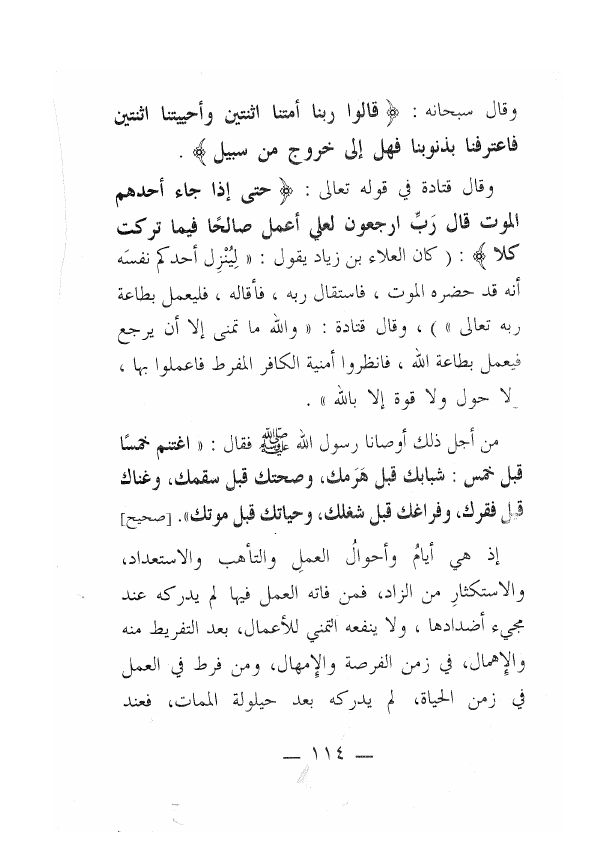 وقال سبحانه : ﴿ قالوا ربنا أمتنا اثنتين وأحييتنا اثنتين
فاعترفنا بذنوبنا فهل إلى خروج من سبيل ﴾ .
وقال قتادة في قوله تعالى : ﴿ حتى إذا جاء أحدهم
الموت قال رَبِّ ارجعون لعلي أعمل صالحًا فيما تركت
كلا ﴾ : ( كان العلاء بن زياد يقول : « لِيُنْزِل أحدكم نفسَه
أنه قد حضره الموت ، فاستقال ربه ، فأقاله ، فليعمل بطاعة
ربه تعالى » ) ، وقال قتادة : « والله ما تمنى إلا أن يرجع
فيعمل بطاعة الله ، فانظروا أمنية الكافر المفرط فاعملوا بها ،
لا حول ولا قوة إلا بالله » .
من أجل ذلك أوصانا رسول الله ﷺ فقال : « اغتنم خمسًا
قبل خمس : شبابك قبل هَرَمك، وصحتك قبل سقمك، وغناك
قبل فقرك، وفراغك قبل شغلك، وحياتك قبل موتك». [صحيح]
إذ هي أيامُ وأحوالُ العملِ والتأهب والاستعداد،
والاستكثارِ من الزاد، فمن فاته العمل فيها لم يدركه عند
مجيء أضدادها ، ولا ينفعه التمني للأعمال، بعد التفريط منه
والإهمال، في زمن الفرصة والإمهال، ومن فرط في العمل
في زمن الحياة، لم يدركه بعد حيلولة الممات، فعند
— ١١٤ —